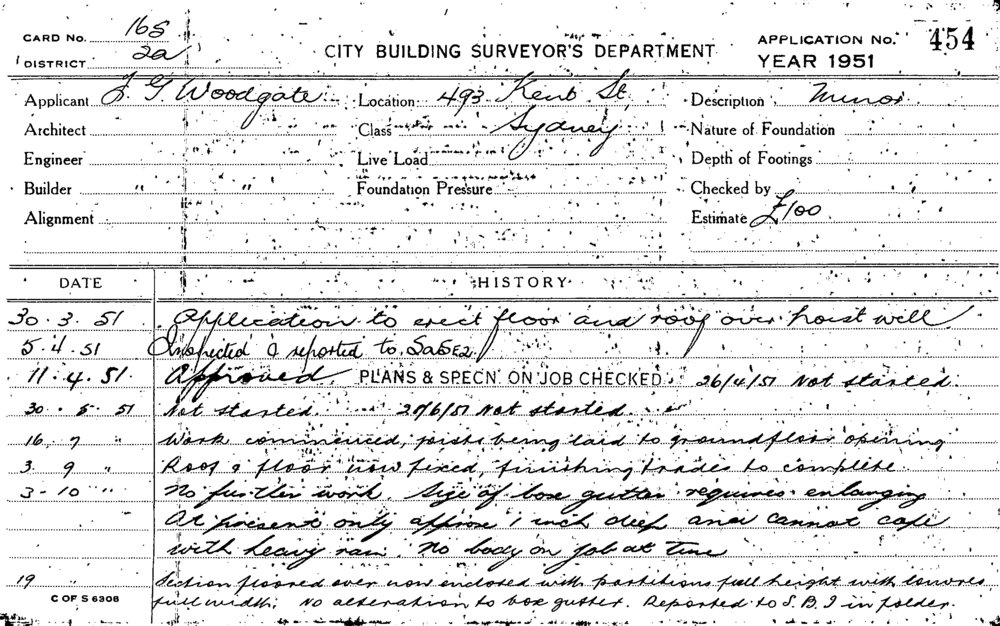 CARD No. 165
DISTRICT 2a
CITY BUILDING SURVEYOR'S DEPARTMENT
APPLICATION No. 454
YEAR 1951
Applicant J. G. Woodgate Location 493 Kent St, Description Minor
Architect Class Sydney Nature of Foundation
Engineer Live Load Depth of Footings
Builder " " Foundation Pressure Checked by
Alignment Estimate £100
DATE HISTORY
30.3.51 Application to erect floor and roof over hoist well
5.4.51 Inspected & reported to
11.4.51 Approved. PLANS & SPECN. ON JOB CHECKED. 26/4/51 Not started.
30.5.51 Not started 27/6/51 Not started.
16.7 " Work commenced, joists being laid to groundfloor opening
3.9 " Roof & floor now fixed, finishing trades to complete
3-10 " No further work. Size of box gutter requires enlarging
At present only approx 1 inch deep and cannot cope
with heavy rain. No body on job at time
19 " Section floored over now enclosed with partitions full height with louvres
C OF S 6306 full width. No alteration to box gutter. Reported to S.B.I in folder.